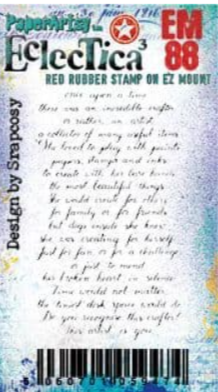 PaperArtsy
EM
88
EclecTica³
RED RUBBER STAMP ON EZ MOUNT
Design by Srapoosy
once upon a time
there was an incredible crafter
or rather, an artist
a collector of many useful items
She loved to play with paints
papers, stamps and inks
to create with her bare hands
the most beautiful things
She would create for others
for family or for friends
but deep inside she knew
she was creating for herself
just for fun or for a challenge
or just to mend
her broken heart in silence
Time would not matter
the tiniest desk space would do
Do you recognise this crafter?
this artist is you